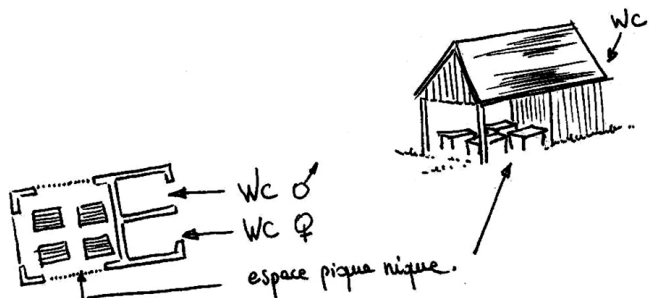 WC
WC ♂
WC ♀
espace pique nique.